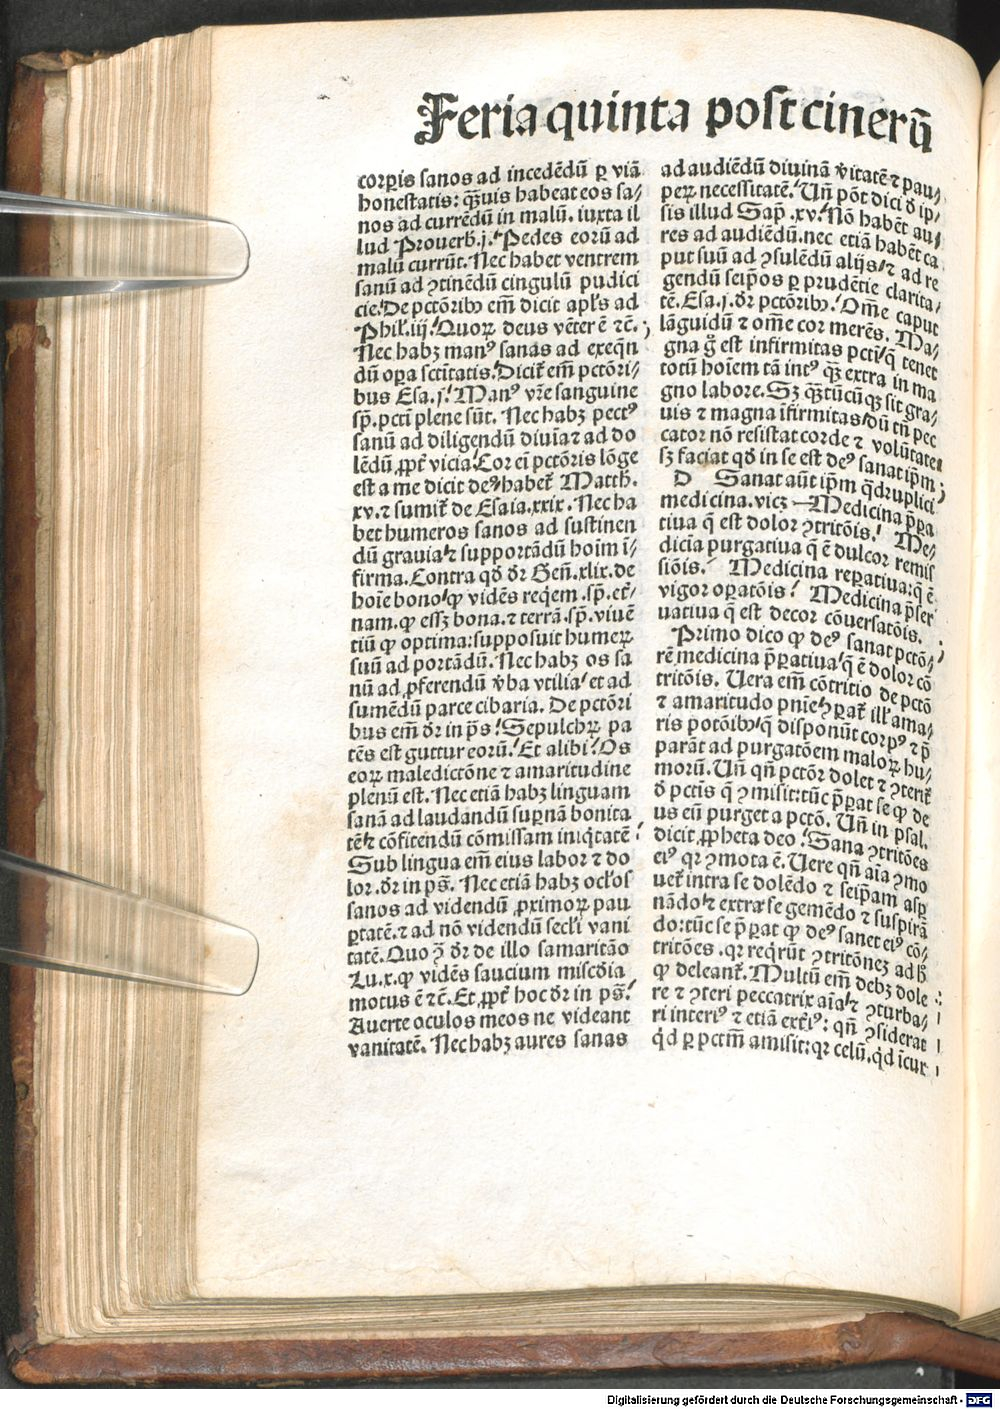 Feria quinta post cinerũ
corꝑis sanos ad incedẽdũ ꝑ viã
honestatis: qᷓuis habeat eos sa⸗
nos ad currẽdũ in malũ. iuxta il
lud Prouerb̃.j. Pedes eorũ ad
malũ currũt. Nec habet ventrem
sanũ ad ꝯtinẽdũ cingulũ pudici
cie. De pctõribꝰ em̃ dicit apl̃s ad
Phil̃.iij. Quoꝝ deus vẽter ẽ ⁊c̃.
Nec habꝫ manꝰ sanas ad exeq̃n
dũ oꝑa sctĩtatis. Dicit̃ em̃ pctõri⸗
bus Esa.j. Manꝰ vr̃e sanguine
sp̃. pctĩ plene sũt. Nec habꝫ pectꝰ
sanũ ad diligendũ diuĩa ⁊ ad do
lẽdũ ꝓpt̃ vicia. Cor ei pctõris lõge
est a me dicit deꝰ ⁊ habet̃ Matth̃.
xv. ⁊ sumit̃ de Esaia.xxix. Nec ha
bet humeros sanos ad sustinen
dũ grauia ⁊ supportãdũ hoĩm ĩ⸗
firma. Contra qd̃ dr̃ Gen̄.xlix. de
hoĩe bono ꝙ vidẽs req̃em .sp̃. et̃⸗
nam. ꝙ essꝫ bona. ⁊ terrã .sp̃. viuẽ
tiũ ꝙ optima: supposuit humeꝝ
suũ ad portãdũ. Nec habꝫ os sa
nũ ad ꝓferendũ v̾ba vtilia et ad
sumẽdũ parce cibaria. De pctõri
bus em̃ dr̃ in p̃s. Sepulchꝝ pa
tẽs est guttur eorũ. Et alibi. Os
eoꝝ maledictõne ⁊ amaritudine
plenũ est. Nec etiã habꝫ linguam
sanã ad laudandũ suꝑnã bonita
tẽ ⁊ cõfitendũ cõmissam iniq̇tatẽ
Sub lingua em̃ eius labor ⁊ do
lor. dr̃ in ps̃. Nec etiã habꝫ ocl̃os
sanos ad videndũ ꝓximoꝝ pau
ꝑtatẽ. ⁊ ad nõ videndũ secl̃i vani
tatẽ. Quo ↄ̃ dr̃ de illo samaritão
Lu.x. ꝙ vidẽs saucium misc̃dia
motus ẽ ⁊c̃. Et ꝓpt̃ hoc dr̃ in ps̃.
Auerte oculos meos ne videant
vanitatẽ. Nec habꝫ aures sanas
ad audiẽdũ diuinã v̾itatẽ ⁊ pau⸗
peꝝ necessitatẽ. Un̄ põt dici d̾ ip⸗
sis illud Sap̃ .xv. Nõ habẽt au⸗
res ad audiẽdũ. nec etiã habẽt ca
put suũ ad ꝯsulẽdũ alijs ⁊ ad re
gendũ seip̃os ꝑ prudẽtie clarita⸗
tẽ. Esa.j. dr̃ pctõribꝰ. Om̃e caput
lãguidũ ⁊ om̃e cor merẽs. Ma⸗
gna g̊ est infirmitas pcti q̃ tenet
totũ hoĩem tã intꝰ qᷓꝫ extra in ma
gno labore. Sꝫ qᷓtũcũqꝫ sit gra⸗
uis ⁊ magna ĩfirmitas dũ tñ pec
cator nõ resistat corde ⁊ volũtate
sꝫ faciat qd̃ in se est deꝰ sanat ip̃m.
D Sanat aũt ip̃m q̃druplici
medicina. vicꝫ — Medicina p̃ꝑa
tiua q̃ est dolor ꝯtritõis. Me⸗
dicĩa purgatiua q̃ ẽ dulcor remis
siõis. Medicina reꝑatiua: q̃ ẽ
vigor oꝑatõis. Medicina p̃ser
uatiua q̃ est decor cõuersatõis.
Primo dico ꝙ deꝰ sanat pctõ⸗
rẽ medicina p̃ꝑatiua q̃ ẽ dolor cõ
tritõis. Uera em̃ cõtritio de pctõ
⁊ amaritudo pnĩe ꝯꝑat̃ ill̃ ama⸗
ris potõibꝰ q̃ disponũt corpꝰ ⁊ p̃
parãt ad purgatõem maloꝝ hu⸗
morũ. Un̄ qñ pctõr dolet ⁊ ꝯterit̃
d̾ pctĩs q̃ ꝯmisit: tũc p̃ꝑat se ꝙ de
us eũ purget a pctõ. Un̄ in psal.
dicit ꝓpheta deo. Sana ꝯtritões
eiꝰ qꝛ ꝯmota ẽ. Uere qñ aĩa ꝯmo
uet̃ intra se dolẽdo ⁊ seip̃am asꝑ
nãdo ⁊ extra se gemẽdo ⁊ suspirã
do: tũc se p̃ꝑat ꝙ deꝰ sanet eiꝰ cõ⸗
tritões. qꝛ req̇rũt ꝯtritõneꝫ ad h̾
ꝙ deleant̃. Multũ em̃ debꝫ dole
re ⁊ ꝯteri peccatrix aĩa ⁊ ꝯturba⸗
ri interiꝰ ⁊ etiã ext̾iꝰ: qñ ꝯsiderat
q̇d ꝑ pctm̃ amisit: qꝛ celũ. q̇d ĩcur
Digitalisierung gefördert durch die Deutsche Forschungsgemeinschaft - DFG